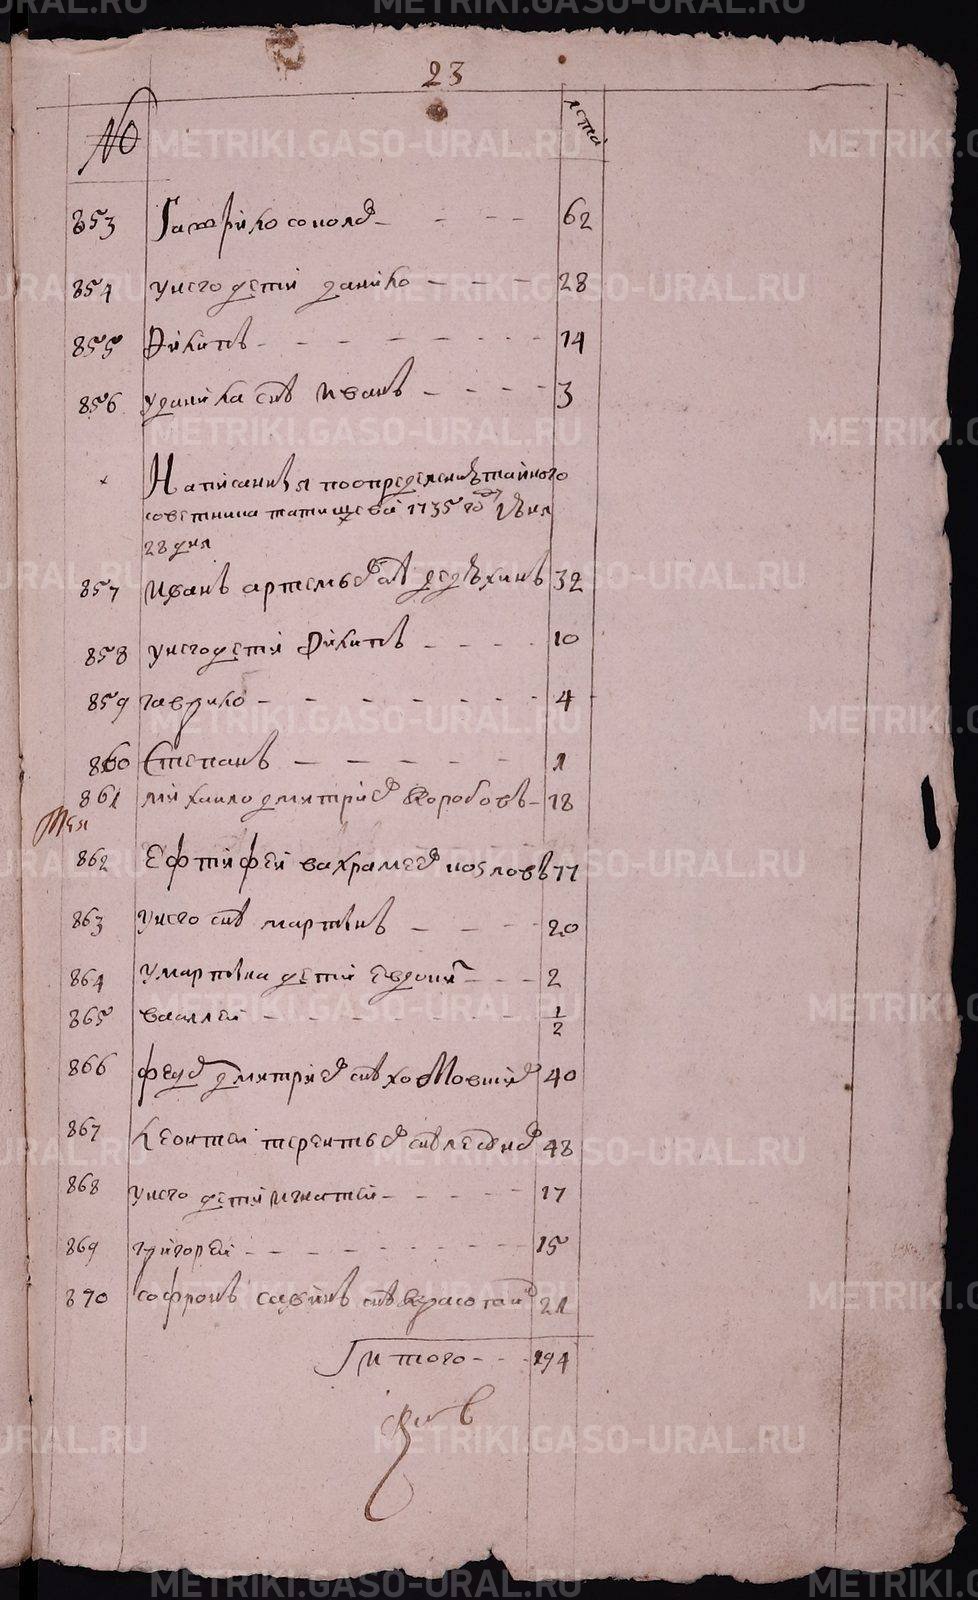 23
№ лета
853 Гаврило соколов 62
854 у него дети данило 28
855 Никита 14
856 у данила снъ иванъ 3
Написанныя по определению тайного
советника татищева 1735 году июня
28 дня
857 иванъ артемьев снъ дедюхинъ 32
858 у него дети Никита 10
859 гаврило 4
860 Степанъ 1
861 михаило дмитриев Коробовъ 18
862 Ефтифей вахрамеев козловъ 77
863 у него снъ мартынъ 20
864 у мартына дети Евдоким 2
865 василей 1/2
866 федор дмитриев снъ 40
867 Леонтей терентьев снъ 48
868 у него дети игнатей 17
869 григорей 15
870 софронъ савинъ снъ 21
Итого 194
METRIKI.GASO-URAL.RU